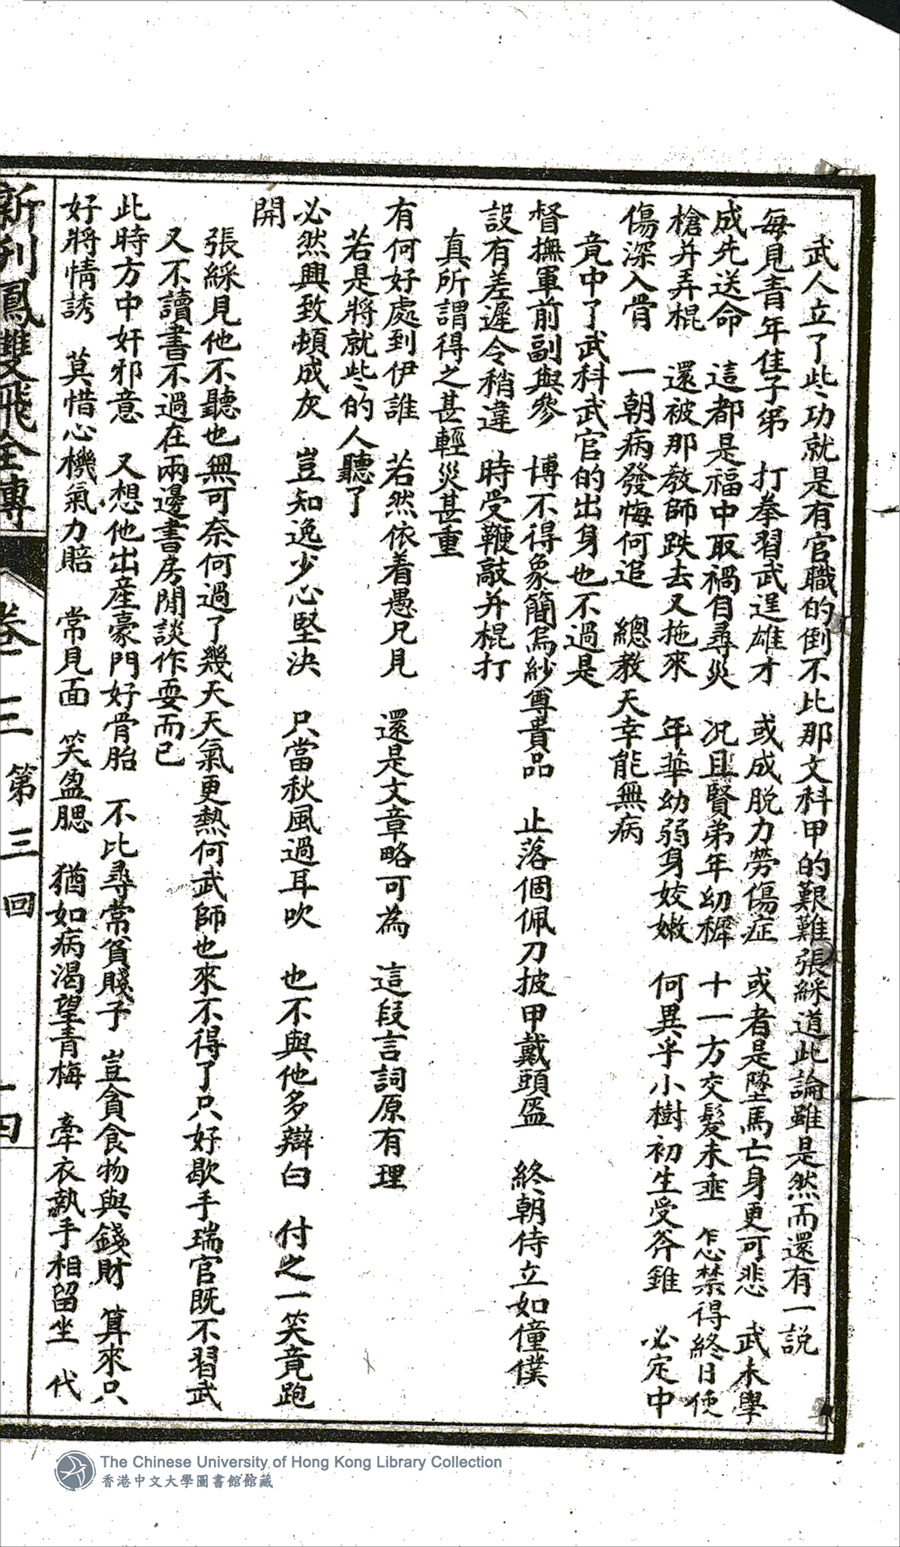 武人立了此功就是有官職的倒不比那文科甲的艱難張綵道此論雖是然而還有一説
每見青年佳子弟　打拳習武逞雄才　或成脫力勞傷症　或者是墜馬亡身更可悲　武未學
成先送命　這都是福中取禍自尋災　况且賢弟年幼穉　十一方交髮未垂　怎禁得終日使
槍并弄棍　還被那教師跌去又拖來　年華幼弱身姣嫩　何異乎小樹初生受斧錐　必定中
傷深入骨　一朝病發悔何追　總教天幸能無病
竟中了武科武官的出身也不過是
督撫軍前副與參　博不得象簡烏紗尊貴品　止落個佩刀披甲戴頭盔　終朝侍立如僮僕
設有差遲令稍違　時受鞭敲并棍打
真所謂得之甚輕災甚重
有何好處到伊誰　若然依着愚兄見　還是文章略可為　這段言詞原有理
若是將就些的人聽了
必然興致頓成灰　豈知逸少心堅決　只當秋風過耳吹　也不與他多辯白　付之一笑竟跑
開
張綵見他不聽也無可奈何過了幾天天氣更熱何武師也來不得了只好歇手瑞官既不習武
又不讀書不過在兩邊書房閒談作耍而已
此時方中奸邪意　又想他出產豪門好骨胎　不比尋常貧賤子　豈貪食物與錢財　算來只
好將情誘　莫惜心機氣力賠　常見面　笑盈腮　猶如病渴望青梅　牽衣執手相留坐　代
新刻鳳雙飛全傳　卷三　第三回　十四
The Chinese University of Hong Kong Library Collection
香港中文大學圖書館館藏